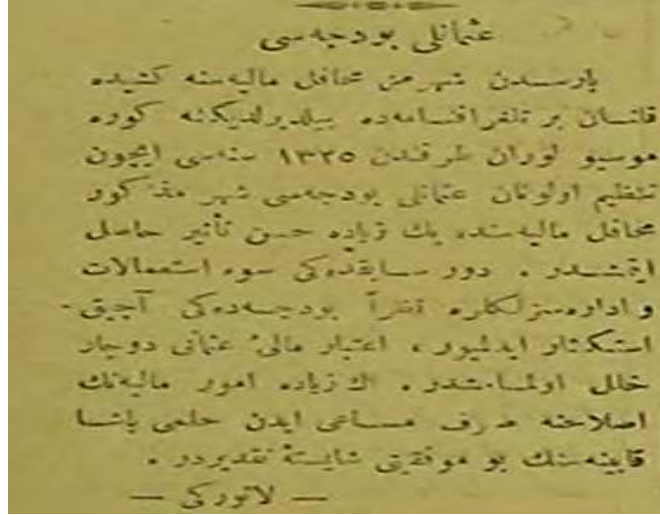 عثمانلی بودجه‌سی
پارسدن شهرمز محافل مالیه‌سنه کشیده
قلنان بر تلغرافنامه‌ده بیلدیرلدیکنه کوره
موسیو لوران طرفندن ١٣٢٥ سنه‌سی ایچون
تنظیم اولونان عثمانلی بودجه‌سی شهر مذکور
محافل مالیه‌سنده پك زیاده حسن تأثیر حاصل
ایتمشدر . دور سابقده‌کی سوء استعمالات
و اداره‌سزلکلره نظراً بودجه‌ده‌کی آچیق
استکثار ایدلمیور ، اعتبار مالیٔ عثمانی دوچار
خلل اولمامشدر . اك زیاده امور مالیه‌نك
اصلاحنه صرف مساعی ایدن حلمی پاشا
قابینه‌سنك بو موفقیتی شایستهٔ تقدیردر .
— لاتورکی —